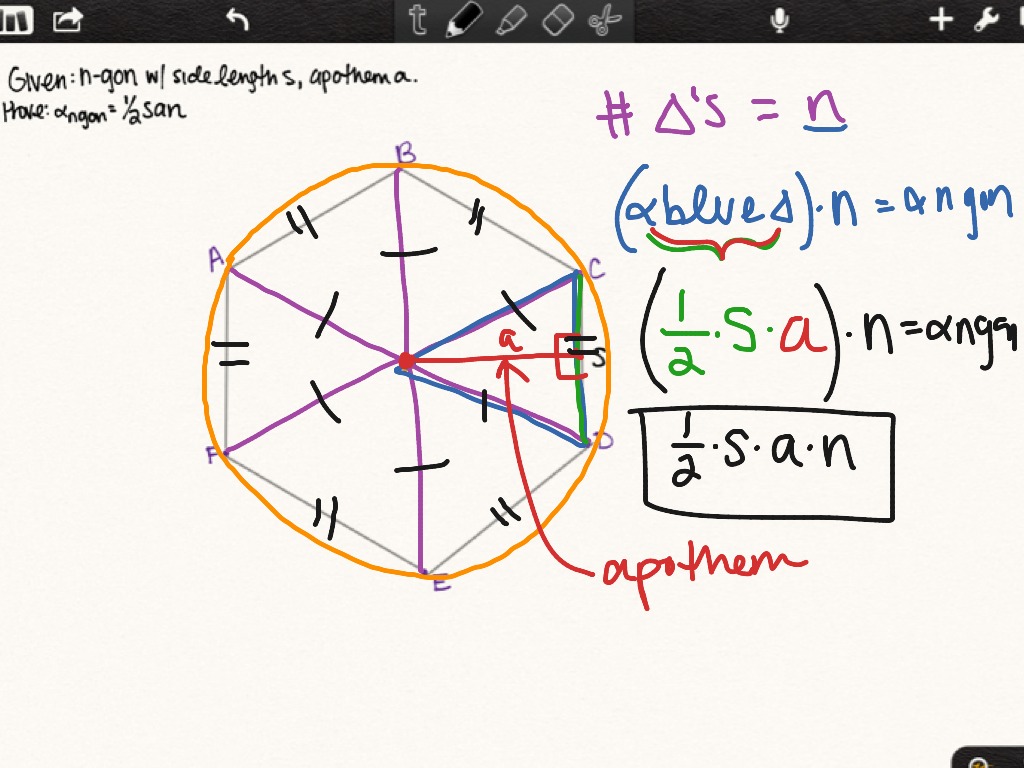 Given: n-gon w/ side length s, apothem a.
Prove: αngon = 1/2 san
# Δ's = n
(αblueΔ)·n = αngon
(1/2·s·a)·n = αngon
1/2·s·a·n
B
A
C
a
s
F
D
E
apothem
t